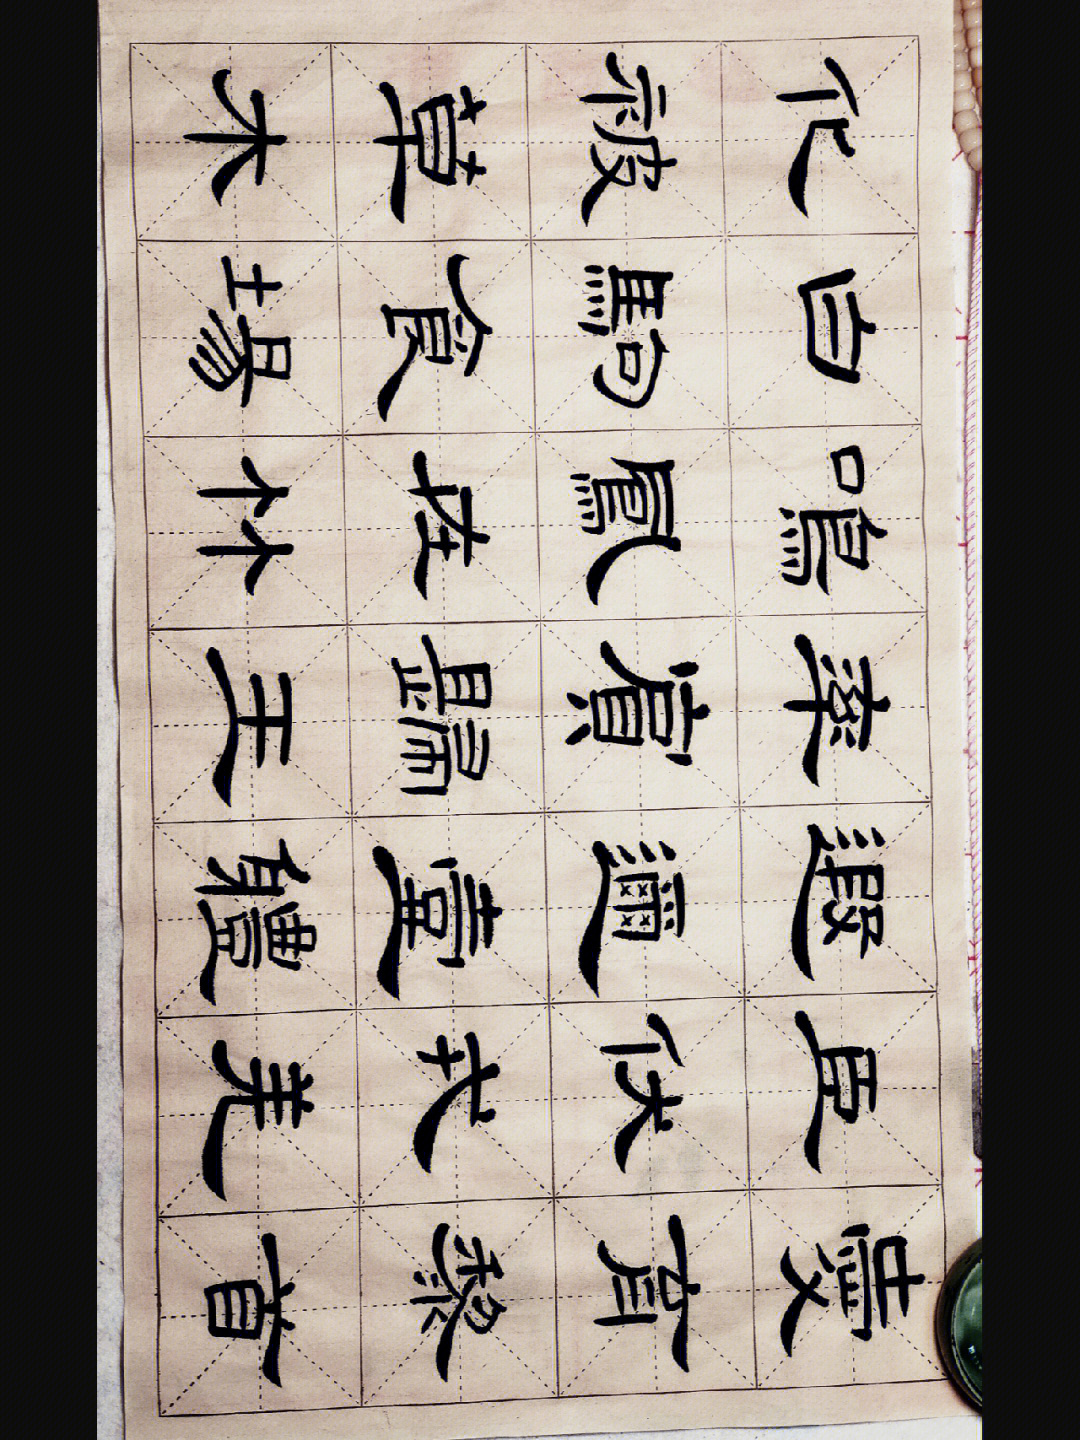 愛育黎首
臣伏戎羌
遐邇壹軆
率賓歸王
鳴鳳在竹
白駒食場
化被草木